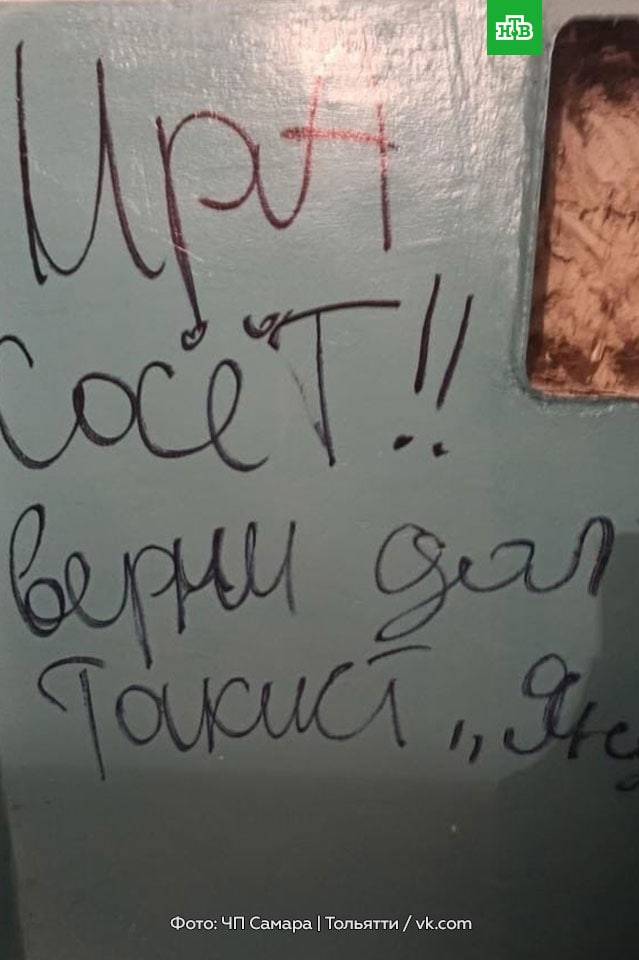 НТВ
Ирн
сосёТ!!
верни дол
Таксист „Янд
Фото: ЧП Самара | Тольятти / vk.com